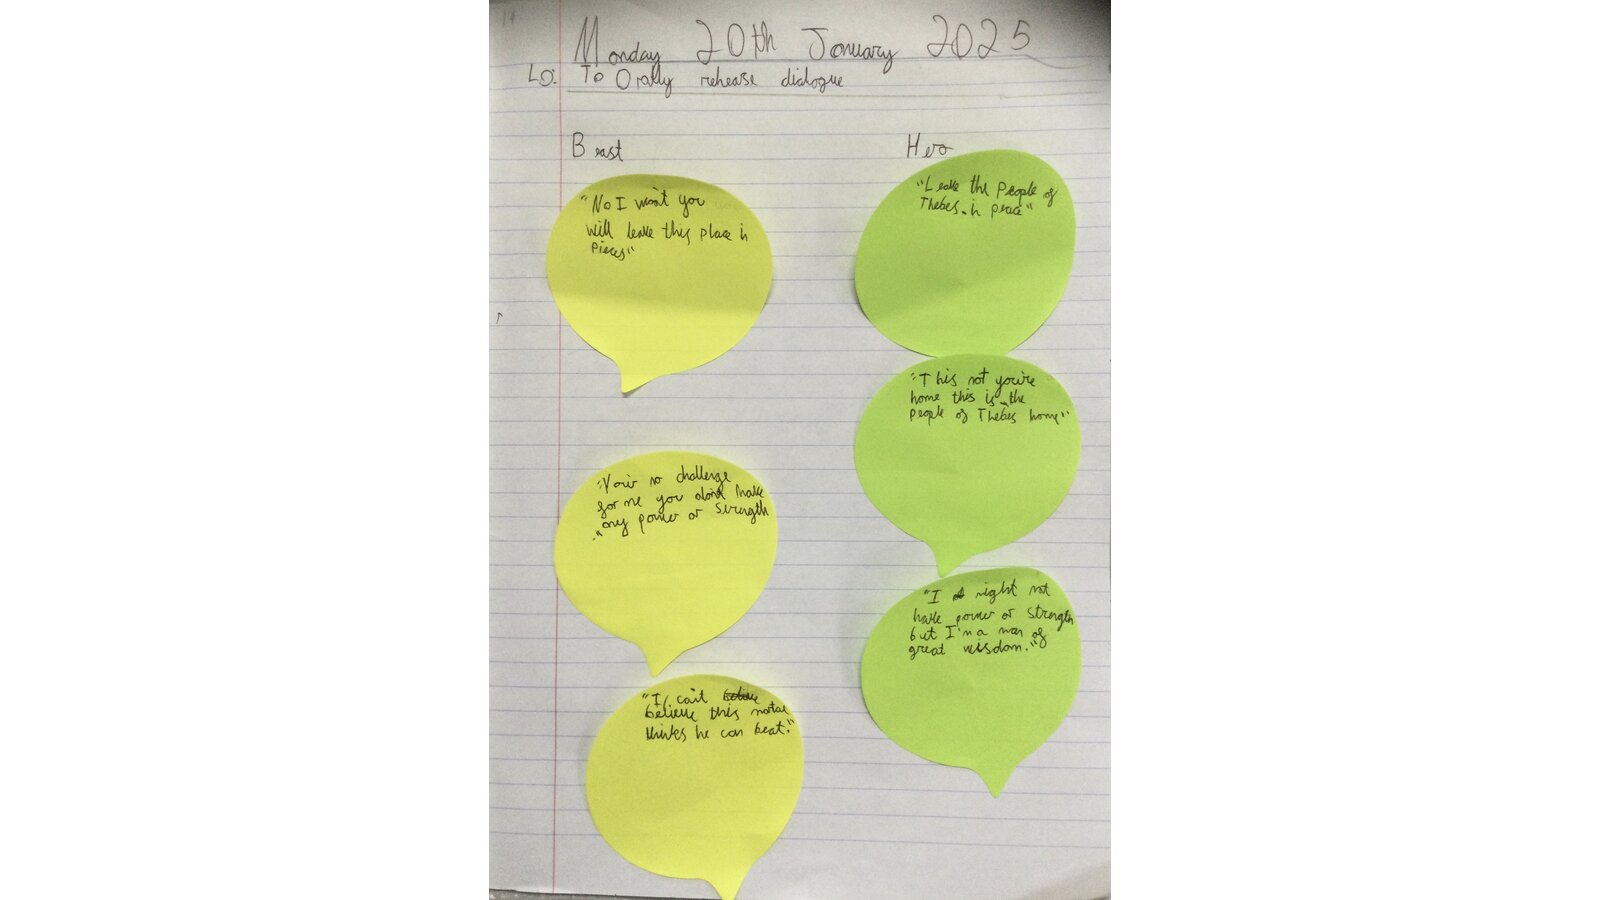 Monday 20th January 2025
LO: To Orally rehease dialogue
Beast
Hero
"No I won't you
will leave this place in
pieces"
"Leave the people of
Thebes in peace"
"This not you're
home this is the
people of Thebes home"
"Your no challenge
for me you don't have
any power or strength
."
"I might not
have power or strength
but I'm a man of
great wisdom."
"I can't
believe this
thinks he can beat."